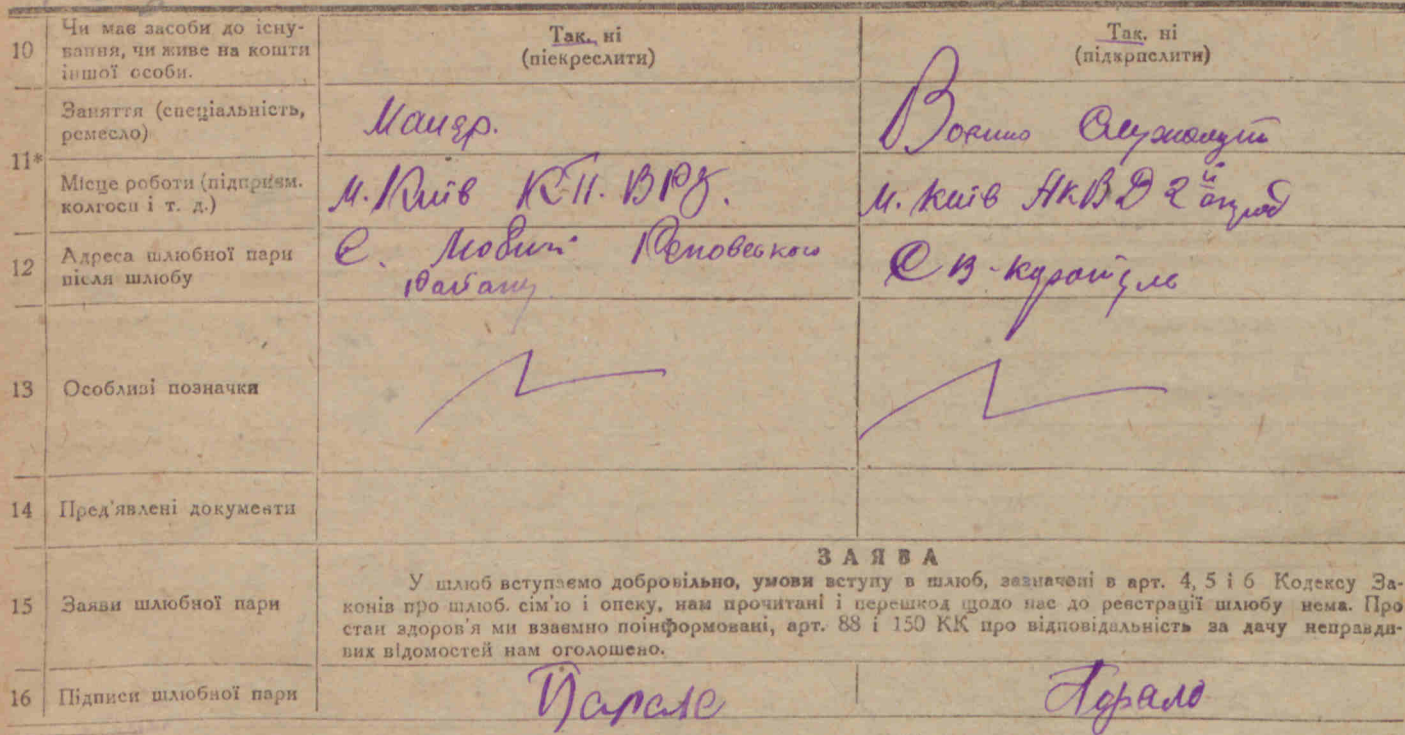 10 Чи має засоби до існу-
вання, чи живе на кошти
іншої особи.
Так, ні
(піекреслити)
Так, ні
(підкрпслити)
11*
Заняття (спеціальність,
ремесло)
Военно
Місце роботи (підприєм.
колгосп і т. д.)
М. Київ К.П. ВРЗ.
М. Київ НКВД 2й
12 Адреса шлюбної пари
після шлюбу
С.
13 Особливі позначки
14 Пред'явлені документи
15 Заяви шлюбної пари
ЗАЯВА
У шлюб вступаємо добровільно, умови вступу в шлюб, зазначені в арт. 4, 5 і 6 Кодексу За-
конів про шлюб. сім'ю і опеку, нам прочитані і перешкод щодо нас до реєстрації шлюбу нема. Про
стан здоров'я ми взаємно поінформовані, арт. 88 і 150 КК про відповідальність за дачу неправди-
вих відомостей нам оголошено.
16 Підписи шлюбної пари